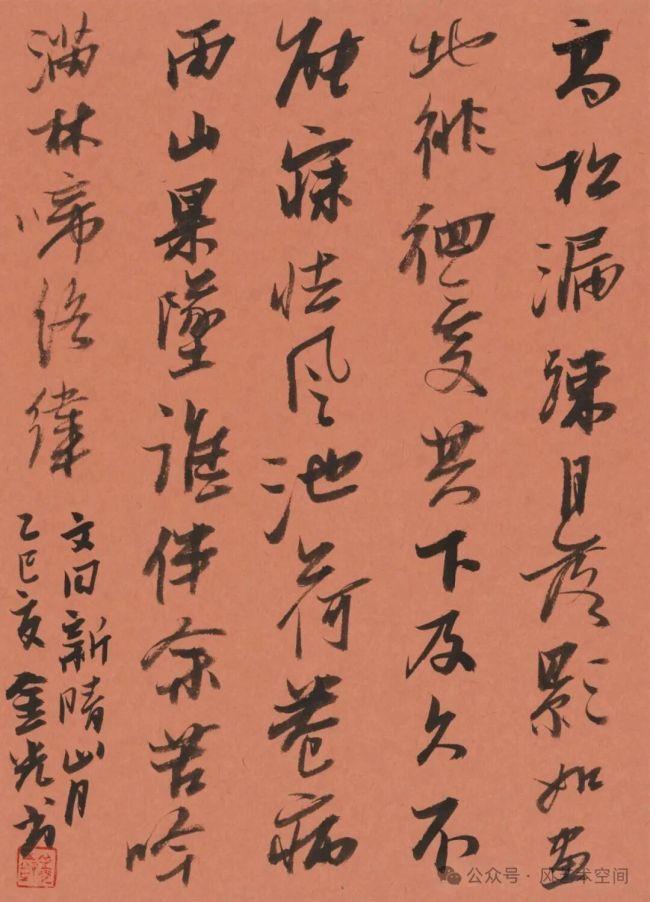 高松漏疎月落影如畫
地徘徊愛其下及久不
能寐怯風池荷卷病
雨山果墜誰伴余苦吟
滿林啼絡緯
文同新晴山月
乙巳夏金光书
公众号 · 风艺术空间